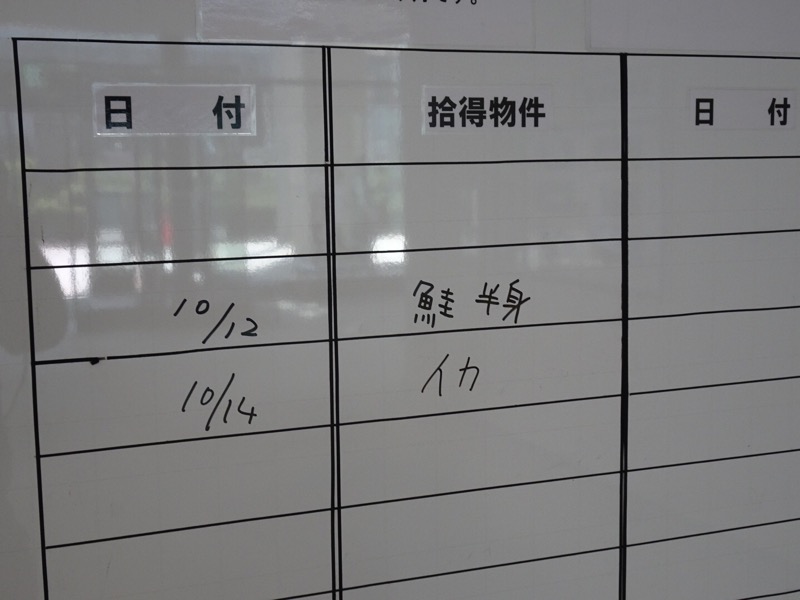 です。
日 付 拾得物件 日 付
10/12 鮭 半身
10/14 イカ